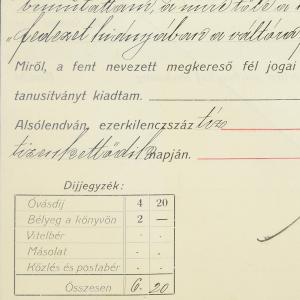 bemutattam, a mire tőle a
„fedezet hiányában a váltóra
Miről, a fent nevezett megkereső fél jogai
tanusítványt kiadtam.
Alsólendván, ezerkilenczszáz tíz
tizenkettődik napján.
Díjjegyzék:
Óvásdíj 4 20
Bélyeg a könyvön 2 —
Vitelbér . .
Másolat . .
Közlés és postabér . .
Összesen 6. 20